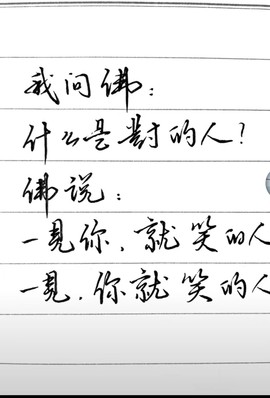 我问佛：
什么是對的人？
佛说：
一見你，就笑的人
一見，你就笑的人